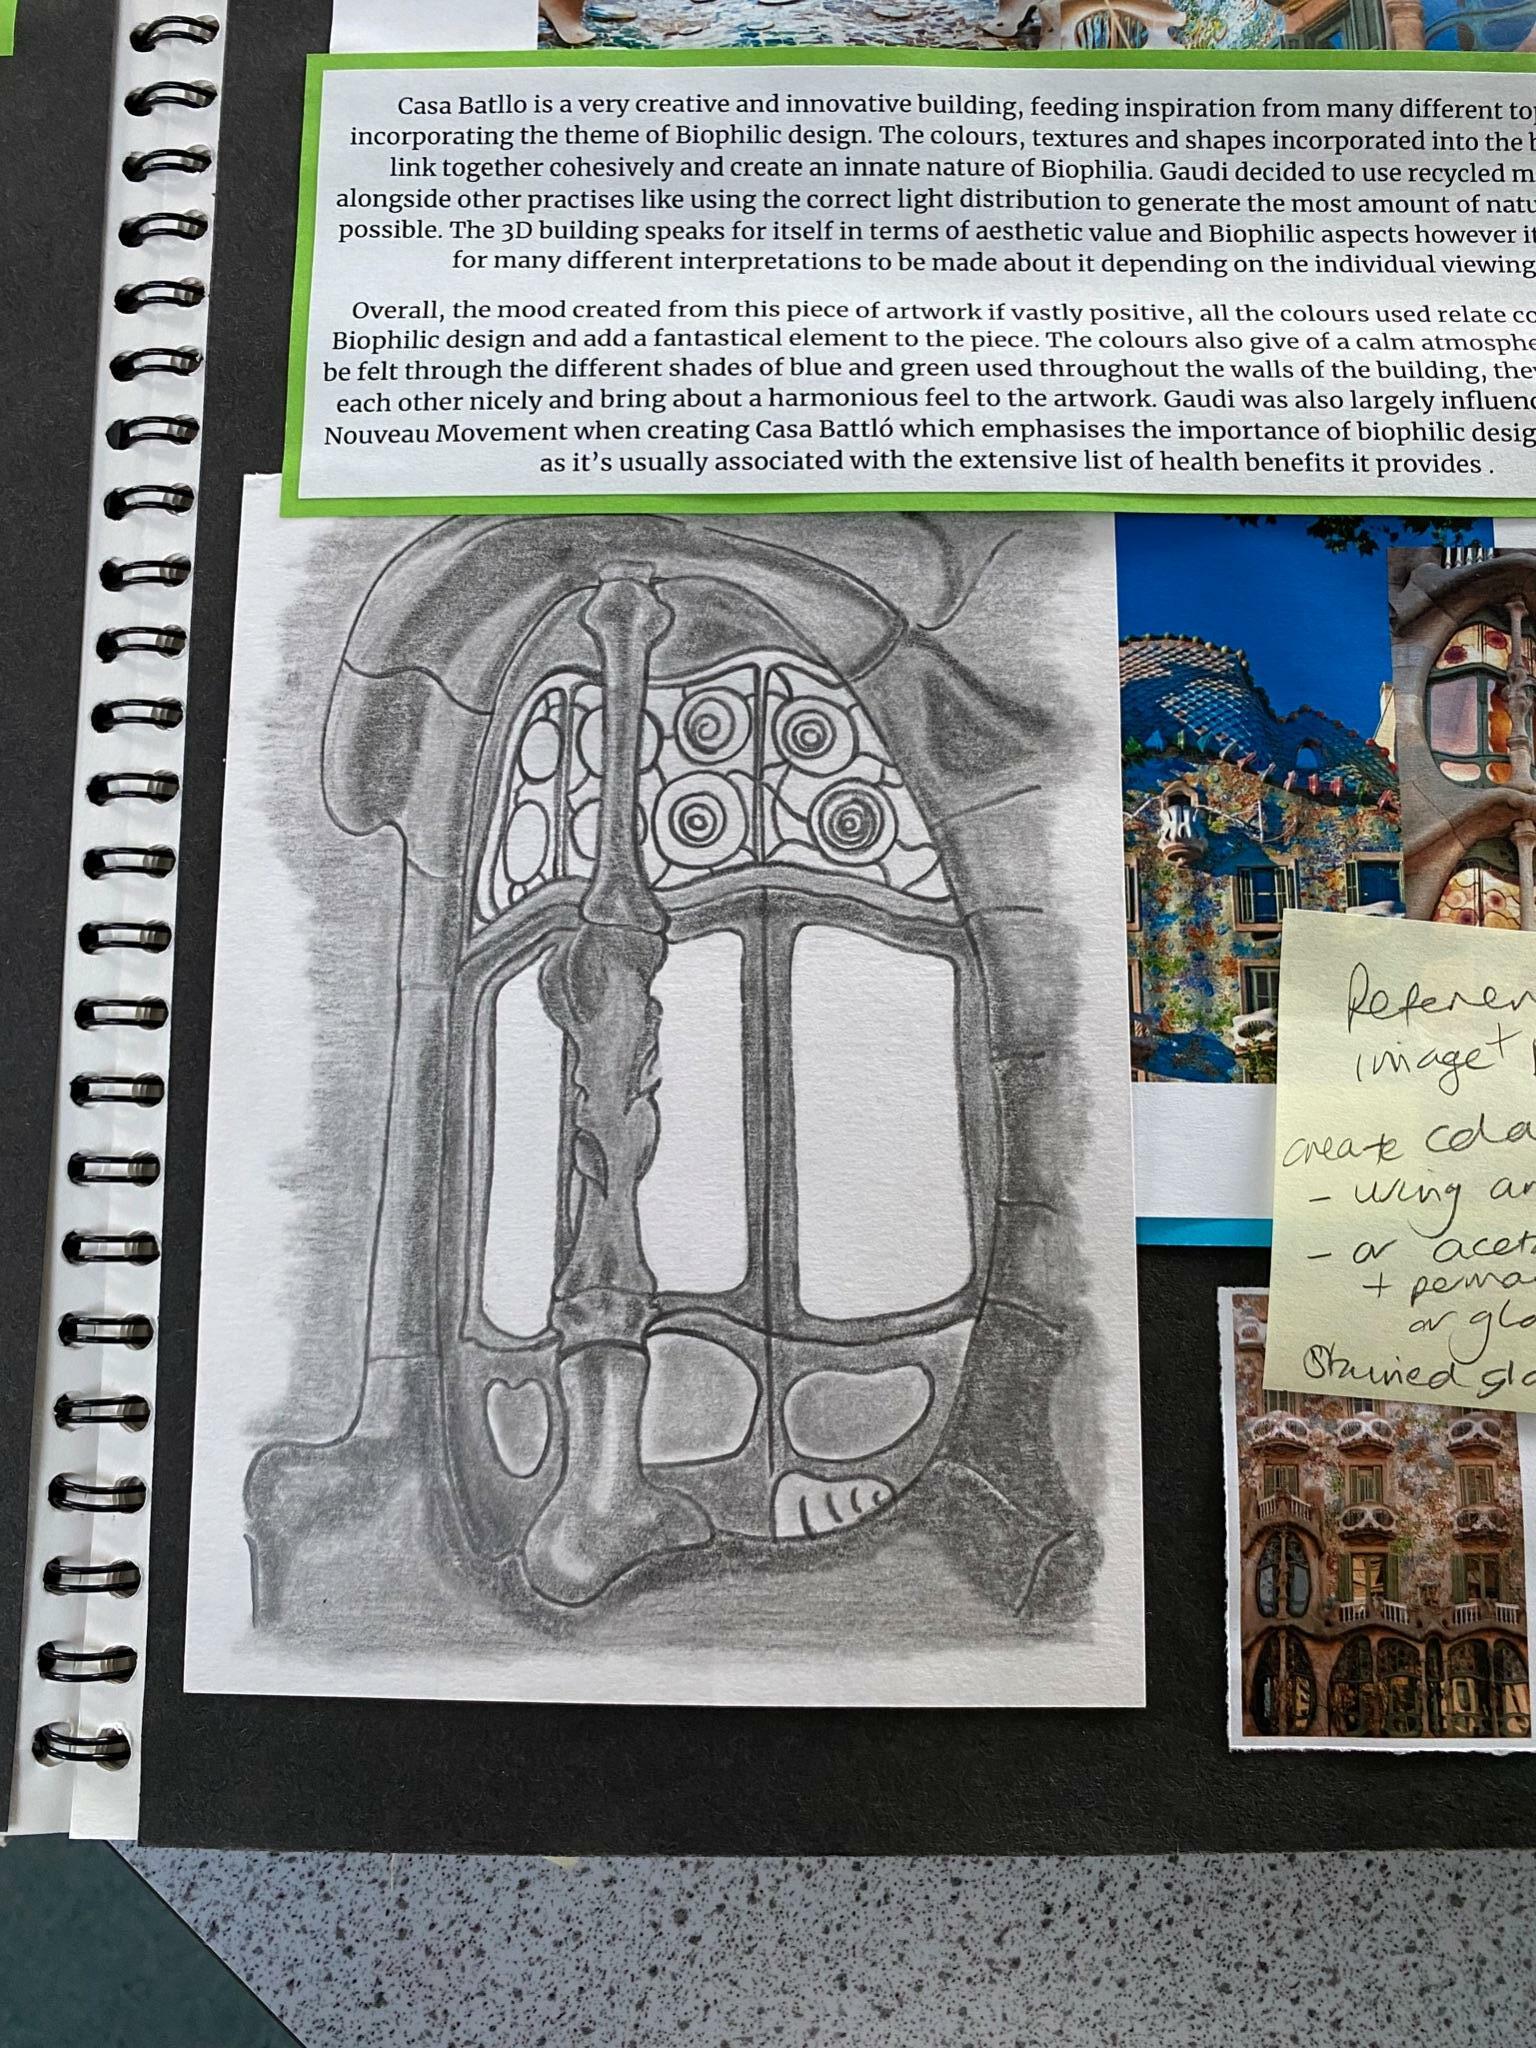 Casa Batllo is a very creative and innovative building, feeding inspiration from many different
incorporating the theme of Biophilic design. The colours, textures and shapes incorporated into the
link together cohesively and create an innate nature of Biophilia. Gaudi decided to use recycled
alongside other practises like using the correct light distribution to generate the most amount of
possible. The 3D building speaks for itself in terms of aesthetic value and Biophilic aspects however it
for many different interpretations to be made about it depending on the individual viewing
Overall, the mood created from this piece of artwork if vastly positive, all the colours used relate
Biophilic design and add a fantastical element to the piece. The colours also give of a calm
be felt through the different shades of blue and green used throughout the walls of the building,
each other nicely and bring about a harmonious feel to the artwork. Gaudi was also largely
Nouveau Movement when creating Casa Battló which emphasises the importance of biophilic
as it's usually associated with the extensive list of health benefits it provides .
image +
create
- using
- or
+
or
Stained